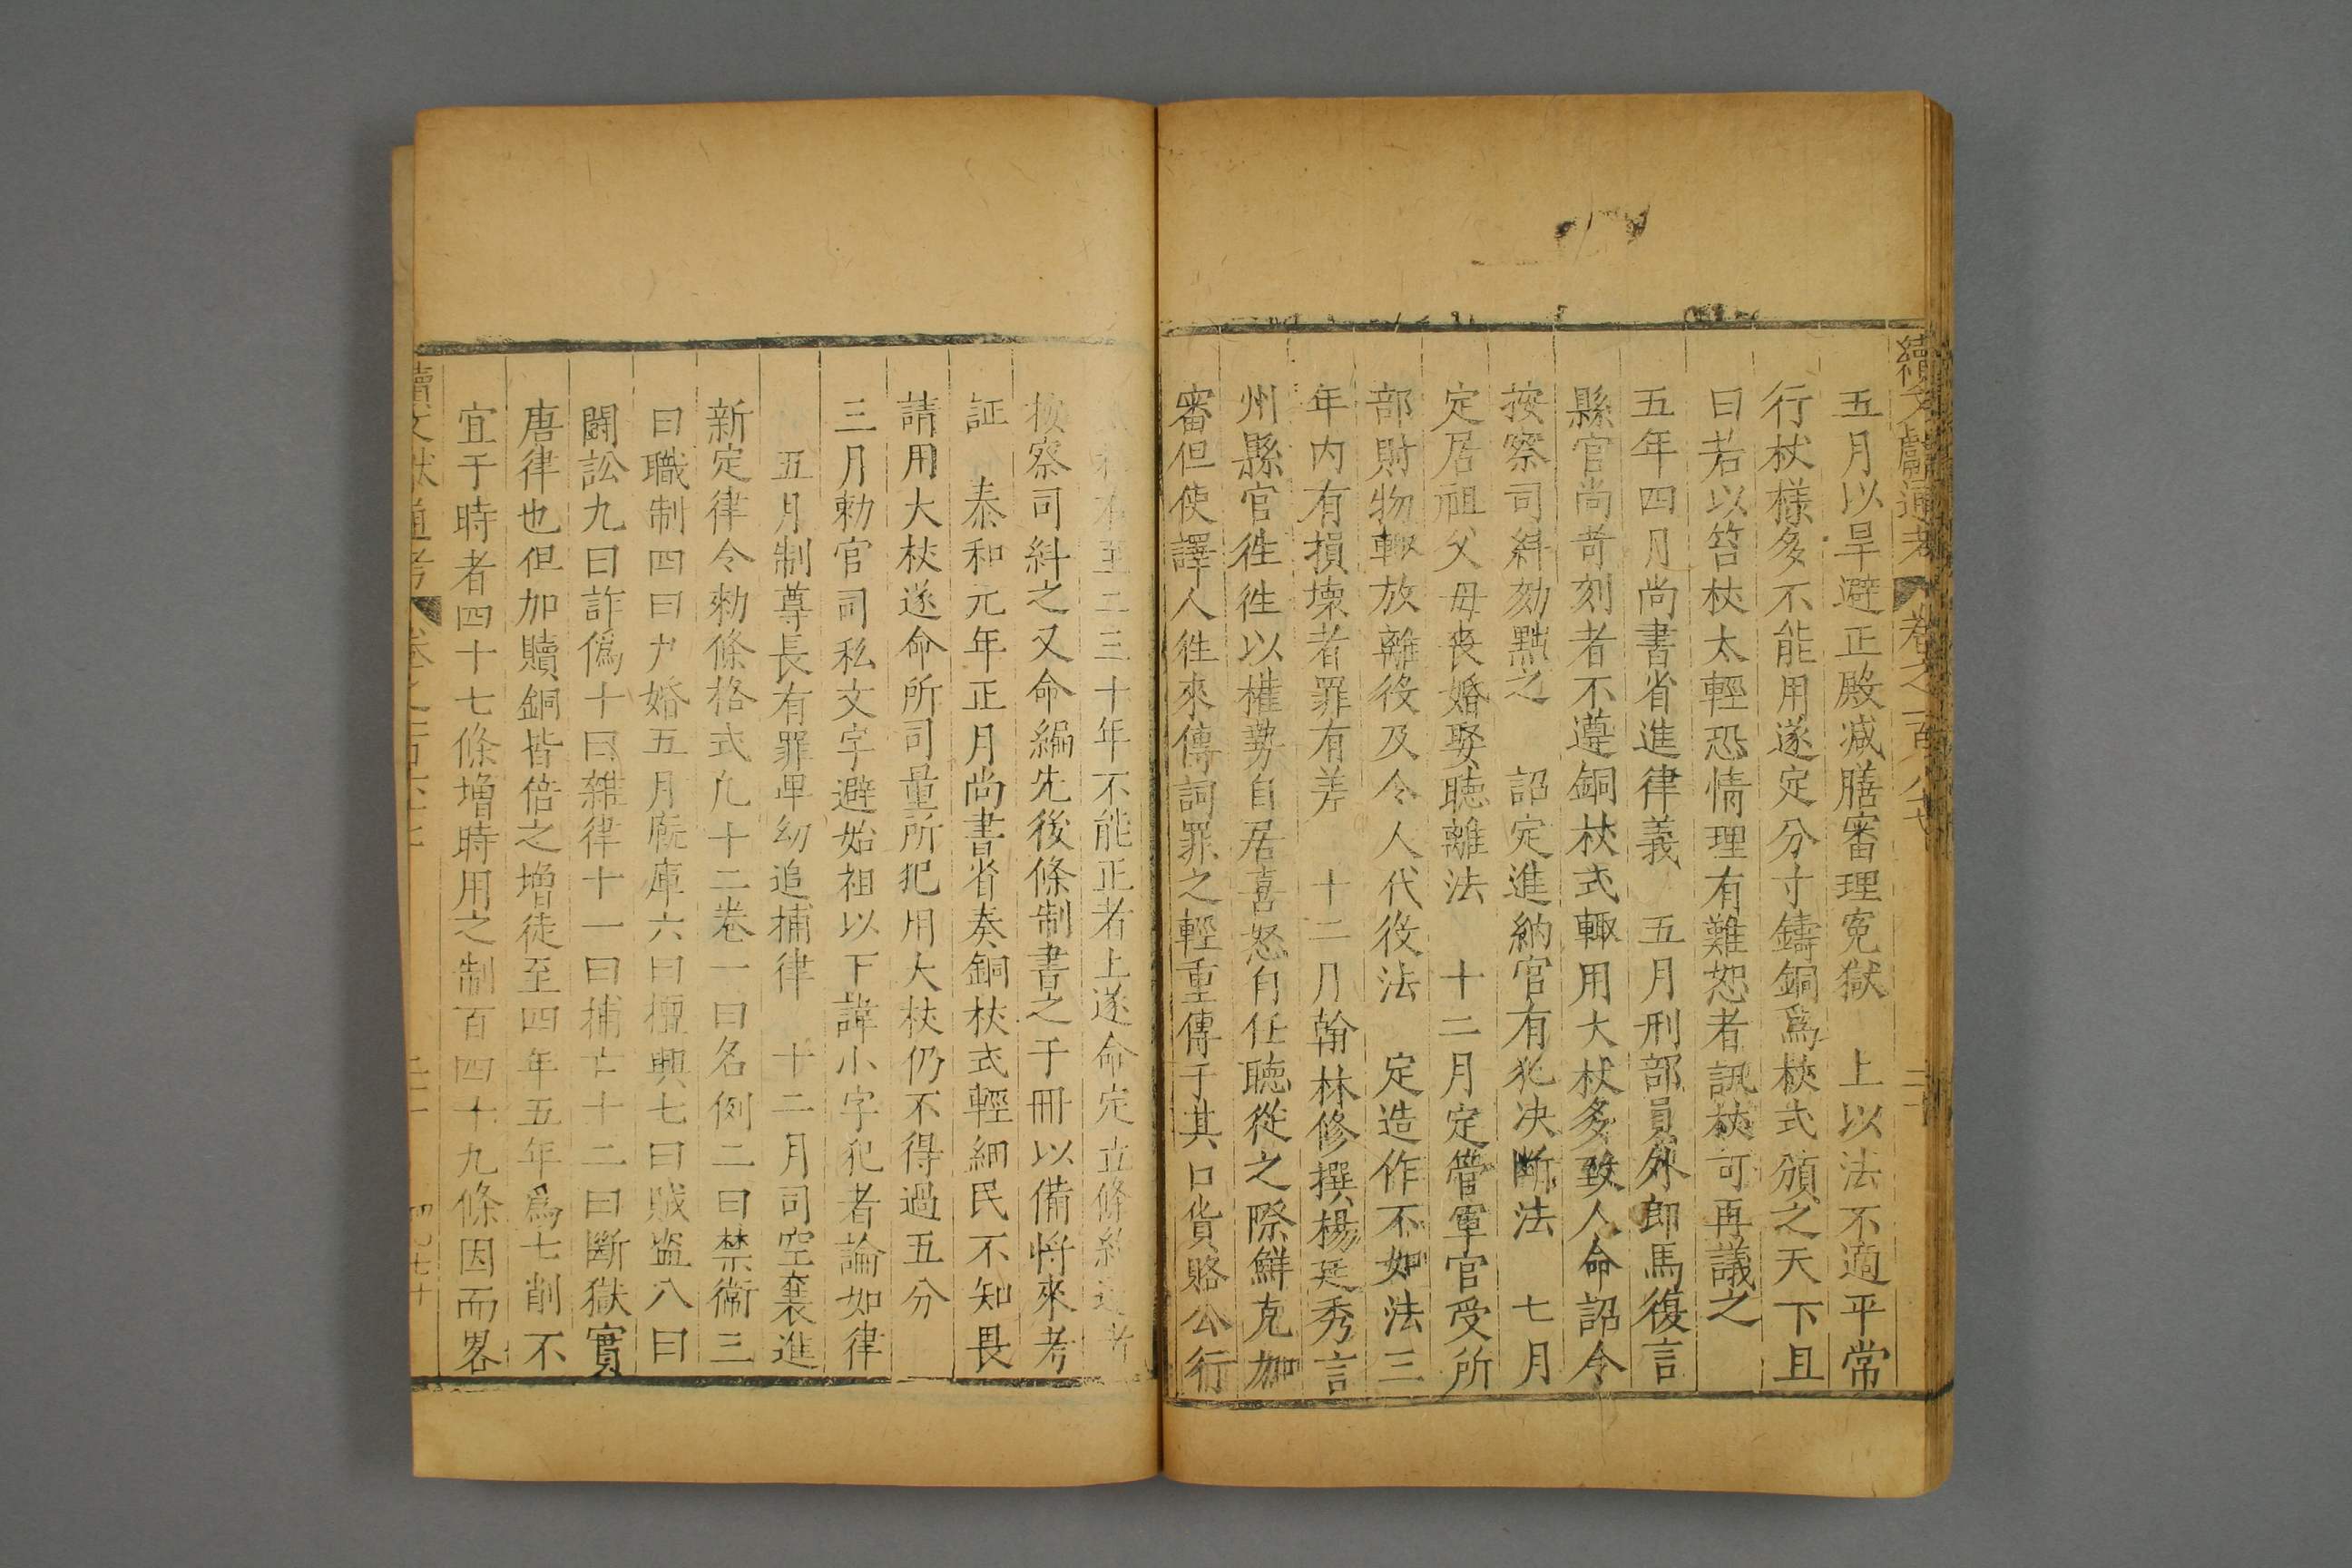 續文獻通考 卷之一百八十七
五月以旱避正殿减膳審理寃獄 上以法不適平常
行杖様多不能用遂定分寸鑄銅爲杖式頒之天下且
曰若以笞杖太輕恐情理有難恕者訊杖可再議之
五年四月尚書省進律義 五月刑部員外郎馬復言
縣官尚苛刻者不遵銅杖式輙用大杖多致人命詔令
按察司糾劾黜之 詔定進納官有犯决断法 七月
定居祖父母喪婚娶聴離法 十二月定管軍官受所
部財物輙放離役及令人代役法 定造作不如法三
年内有損壊者罪有差 十二月翰林修撰楊廷秀言
州縣官徃徃以權勢自居喜怒自任聴從之際鮮克加
審但使譯人徃來傳詞罪之輕重傳于其口貨賂公行
至二三十年不能正者上遂命定立條約
按察司糾之又命編先後條制書之于冊以備将來考
証 泰和元年正月尚書省奏銅杖式輕細民不知畏
請用大杖遂命所司量所犯用大杖仍不得過五分
三月勅官司私文字避始祖以下諱小字犯者論如律
五月制尊長有罪卑幼追捕律 十二月司空襄進
新定律令勅條格式九十二卷一曰名例二曰禁衛三
曰職制四曰户婚五月廐庫六曰擅興七曰賊盗八曰
闘訟九曰詐僞十曰雜律十一曰捕亡十二曰斷獄實
唐律也但加贖銅皆倍之增徒至四年五年爲七削不
宜于時者四十七條增時用之制百四十九條因而畧
續文獻通考